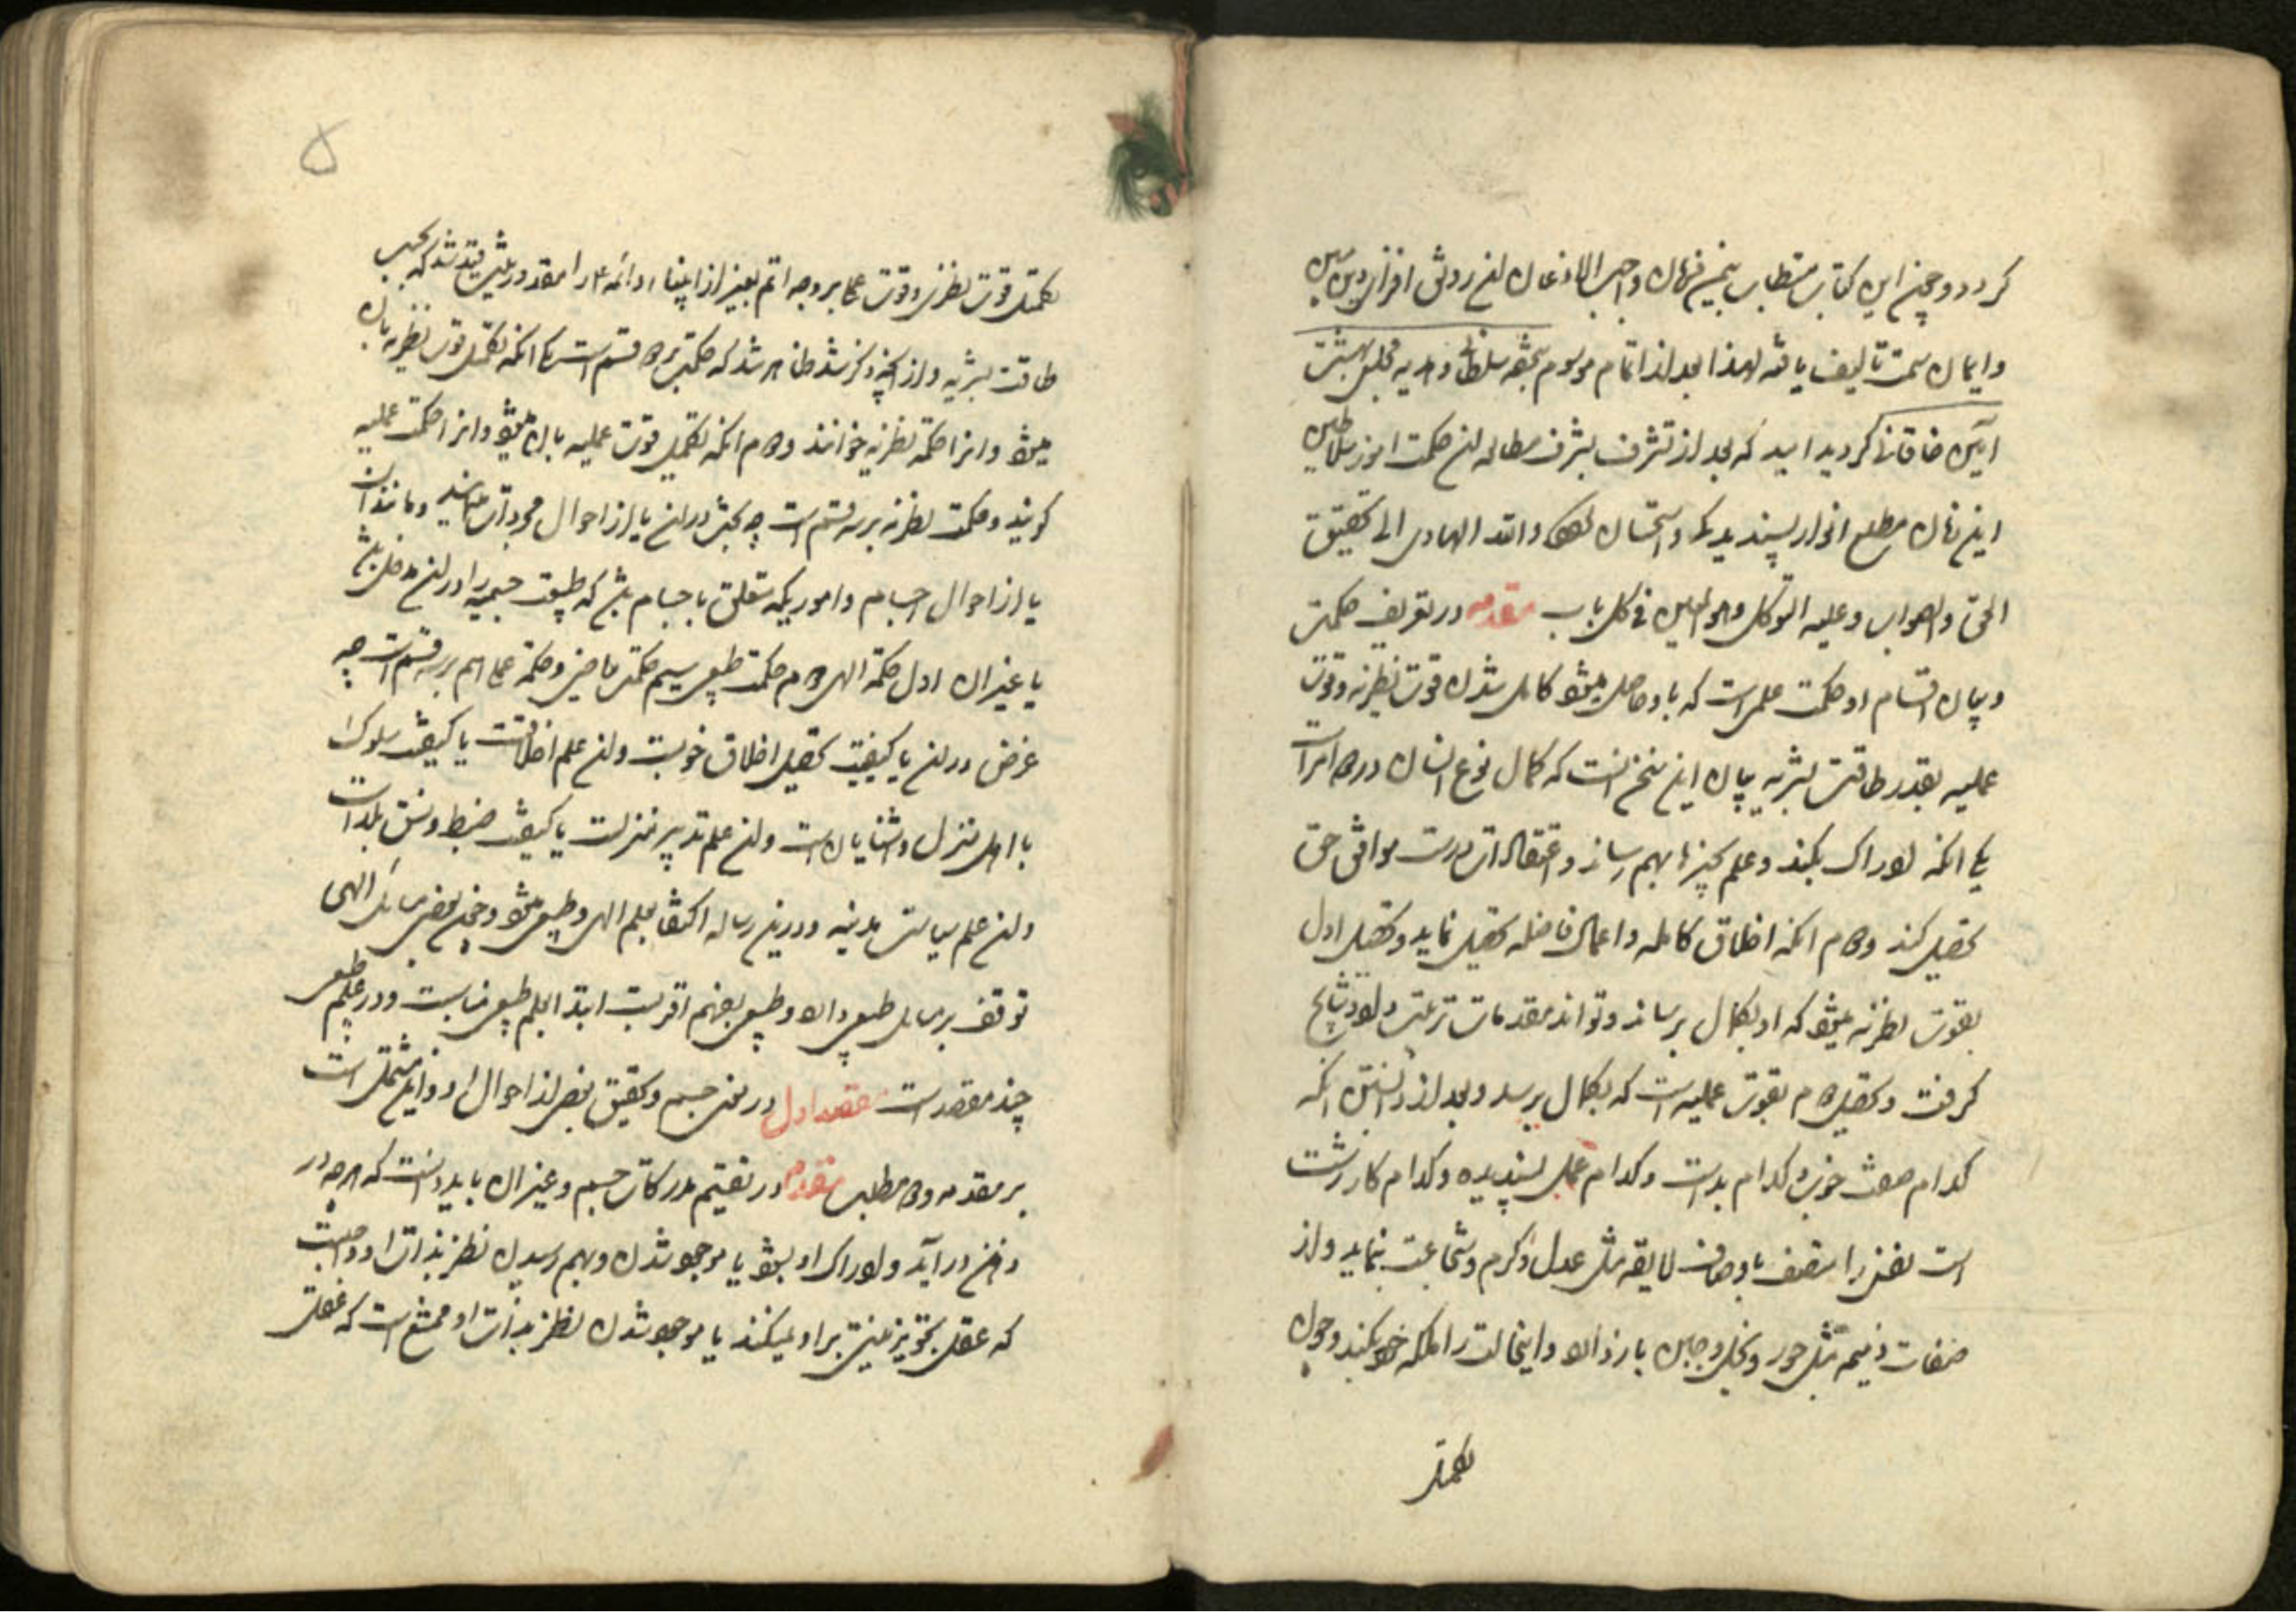 گردد و چون این کتاب مستطاب بیمن فرمان واجب الاذعان آن رونق افزای دین مبین
و ایمان سمت تالیف یافته لهذا بعد از اتمام موسوم بتحفه سلطانی و هدیه مجلس بهشت
آیین خاقانی گردید امید که بعد از تشرف بشرف مطالعه آن حکمت آموز سلاطین
این زمان مطلع انوار پسندیدگی و استحسان گردد والله الهادی الی تحقیق
الحق والصواب وعلیه التوکل وهو المعین فی کل باب مقدمه در تعریف حکمت
و بیان اقسام او حکمت علمی است که باو حاصل میشود کامل شدن قوت نظریه و قوت
عملیه بقدر طاقت بشریه بیان این سخن آنست که کمال نوع انسان در دو امر است
یکی آنکه ادراک بکند و علم بچیزها بهم رساند و اعتقادات درست موافق حق
تحصیل کند دوم آنکه اخلاق کامله و اعمال فاضله تحصیل نماید و تحصیل اول
بقوت نظریه میشود که او بکمال برساند و تواند مقدمات ترتیب داد و نتایج
گرفت و تحصیل دوم بقوت عملیه است که بکمال برسد و بعد از دانستن آنکه
کدام صفت خوب و کدام بد است و کدام عمل پسندیده و کدام کار زشت
است نفس را متصف باوصاف لایقه مثل عدل و کرم و شجاعت بنماید و از
صفات ذمیمه مثل جور و بخل و جبن باز دارد و اینحالت را ملکه خود بکند و چون
تکمیل
۵
تکمیل قوت نظری و قوت عملی بر وجه اتم بغیر از انبیاء و ائمه را مقدور نیست قید شد که بحسب
طاقت بشریه و از آنچه ذکر شد ظاهر شد که حکمت بر دو قسم است یکی آنکه تکمیل قوت نظریه بآن
میشود و آنرا حکمة نظریه خوانند دوم آنکه تکمیل قوت عملیه بآن میشود و آنرا حکمت عملیه
گویند و حکمت نظریه بر سه قسم است چه بحث در آن یا از احوال مجردات و مانند آن
یا از احوال اجسام و اموریکه متعلق باجسام باشد که طبیعت جسمیه را در آن مدخل باشد
یا غیر آن اول حکمة الهی دوم حکمت طبیعی سیم حکمت ریاضی و حکمة عملی هم بر سه قسم است چه
غرض در آن یا کیفیت تحصیل اخلاق خوبست و آن علم اخلاقست یا کیفیت سلوک
با اهل منزل و آشنایان است و آن علم تدبیر منزلست یا کیفیت ضبط و نسق بلد است
و آن علم سیاست مدنیه و درین رساله اکتفا بعلم الهی و طبیعی میشود و چون بعضی مسائل الهی
توقف بر مسائل طبیعی دارد و طبیعی بفهم اقربست ابتدا بعلم طبیعی مناسبست و در علم طبیعی
چند مقصد است مقصد اول در معنی جسم و تحقیق بعضی از احوال او و این مشتمل است
بر مقدمه و دو مطلب مقدمه در تقسیم مدرکات جسم و غیر آن باید دانست که هر چه در
ذهن در آید و ادراک او بشود یا موجود شدن و بهم رسیدن نظر بذات او واجبست
که عقل تجویز نیستی بر او نمیکند یا موجود شدن نظر بذات او ممتنع است که عقل